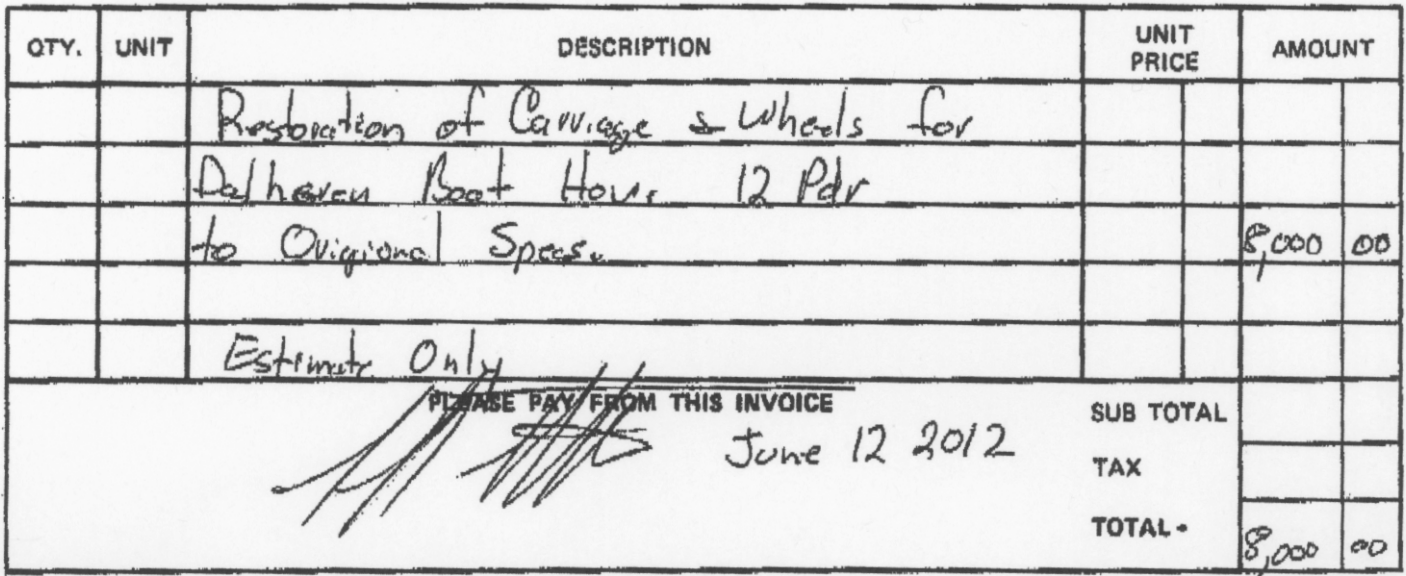 QTY. UNIT DESCRIPTION UNIT PRICE AMOUNT
Restoration of Carriage & Wheels for
Dalhgren Boat How. 12 Pdr
to Origional Specs. 8,000 00
Estimate Only
PLEASE PAY FROM THIS INVOICE SUB TOTAL
June 12 2012
TAX
TOTAL 8,000 00